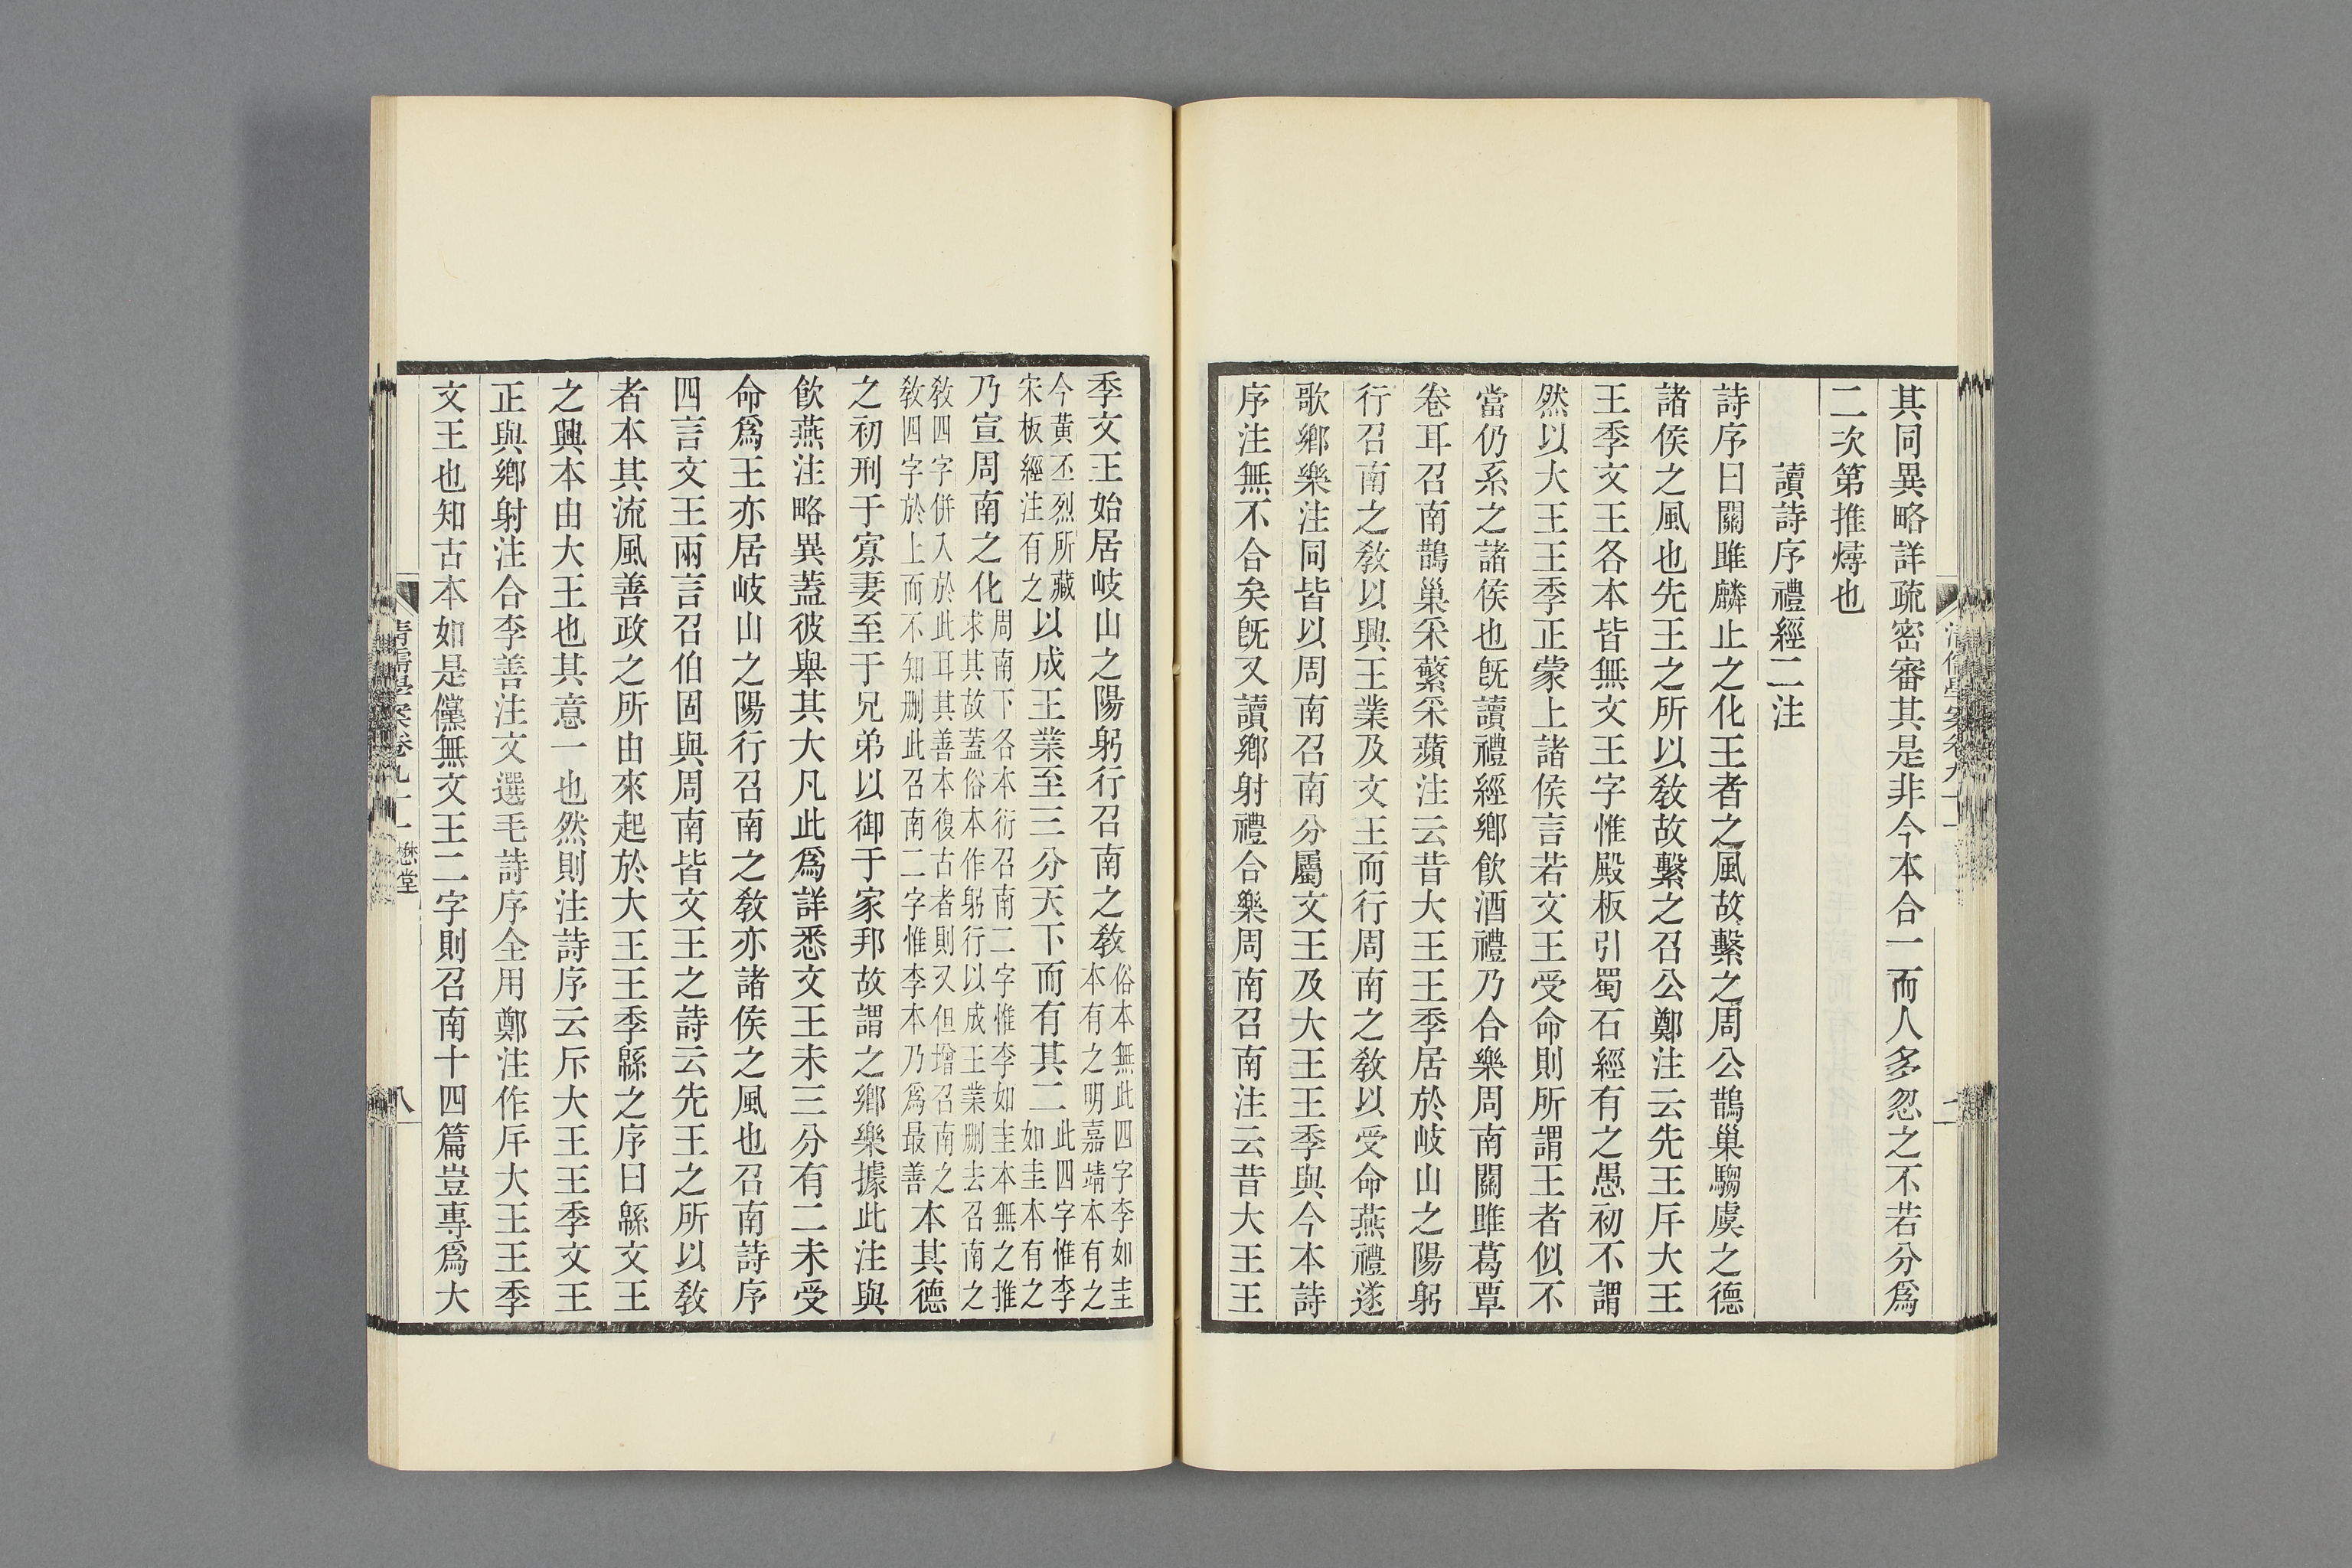 其同異略詳疏密審其是非今本合一而人多忽之不若分爲
二次第推燖也
讀詩序禮經二注
詩序曰關雎麟止之化王者之風故繫之周公鵲巢騶虞之德
諸侯之風也先王之所以敎故繫之召公鄭注云先王斥大王
王季文王各本皆無文王字惟殿板引蜀石經有之愚初不謂
然以大王王季正蒙上諸侯言若文王受命則所謂王者似不
當仍系之諸侯也旣讀禮經鄉飮酒禮乃合樂周南關雎葛覃
卷耳召南鵲巢采蘩采蘋注云昔大王王季居於岐山之陽躬
行召南之敎以興王業及文王而行周南之敎以受命燕禮遂
歌鄉樂注同皆以周南召南分屬文王及大王王季與今本詩
序注無不合矣旣又讀鄉射禮合樂周南召南注云昔大王王
季文王始居岐山之陽躬行召南之敎俗本無此四字李如圭本有之明嘉靖本有之
今黃丕烈所藏宋板經注有之以成王業至三分天下而有其二此四字惟李如圭本有之
乃宣周南之化周南下各本衍召南二字惟李如圭本無之推求其故蓋俗本作躬行以成王業删去召南之
敎四字併入於此耳其善本復古者則又但增召南之敎四字於上而不知删此召南二字惟李本乃爲最善本其德
之初刑于寡妻至于兄弟以御于家邦故謂之鄉樂據此注與
飮燕注略異蓋彼舉其大凡此爲詳悉文王未三分有二未受
命爲王亦居岐山之陽行召南之敎亦諸侯之風也召南詩序
四言文王兩言召伯固與周南皆文王之詩云先王之所以敎
者本其流風善政之所由來起於大王王季緜之序曰緜文王
之興本由大王也其意一也然則注詩序云斥大王王季文王
正與鄉射注合李善注文選毛詩序全用鄭注作斥大王王季
文王也知古本如是儻無文王二字則召南十四篇豈專爲大
清儒學案卷九十一 懋堂
八